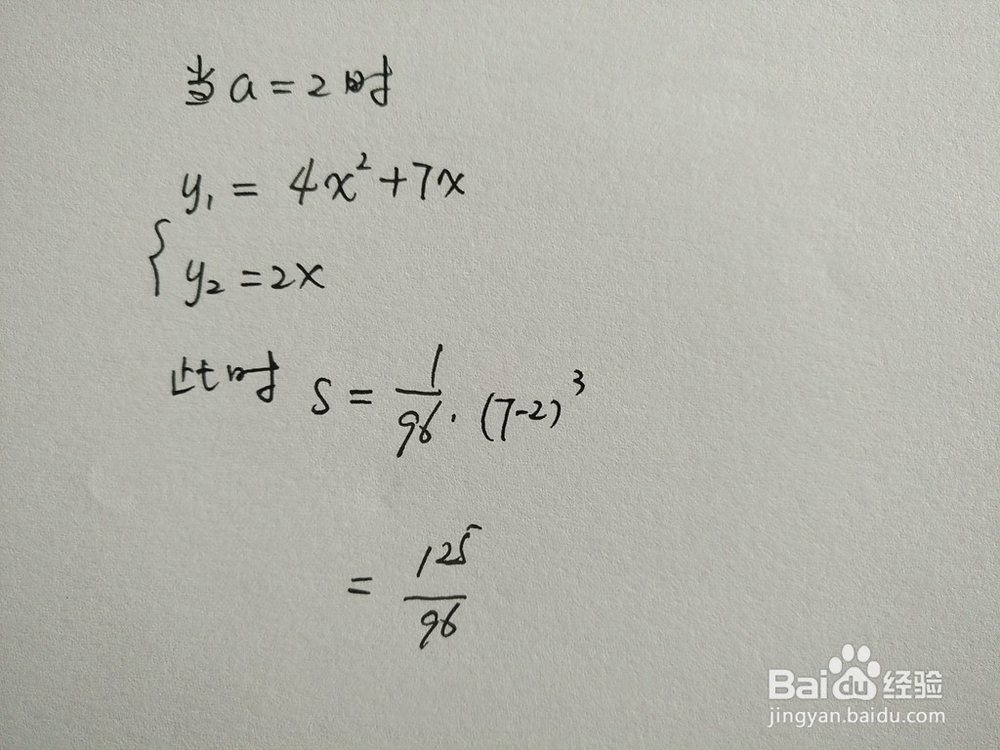 当a=2时
y₁ = 4x²+7x
{ y₂ =2x
此时 S = 1/96 · (7-2)³
= 125/96
Baidu 经验
jingyan.baidu.com